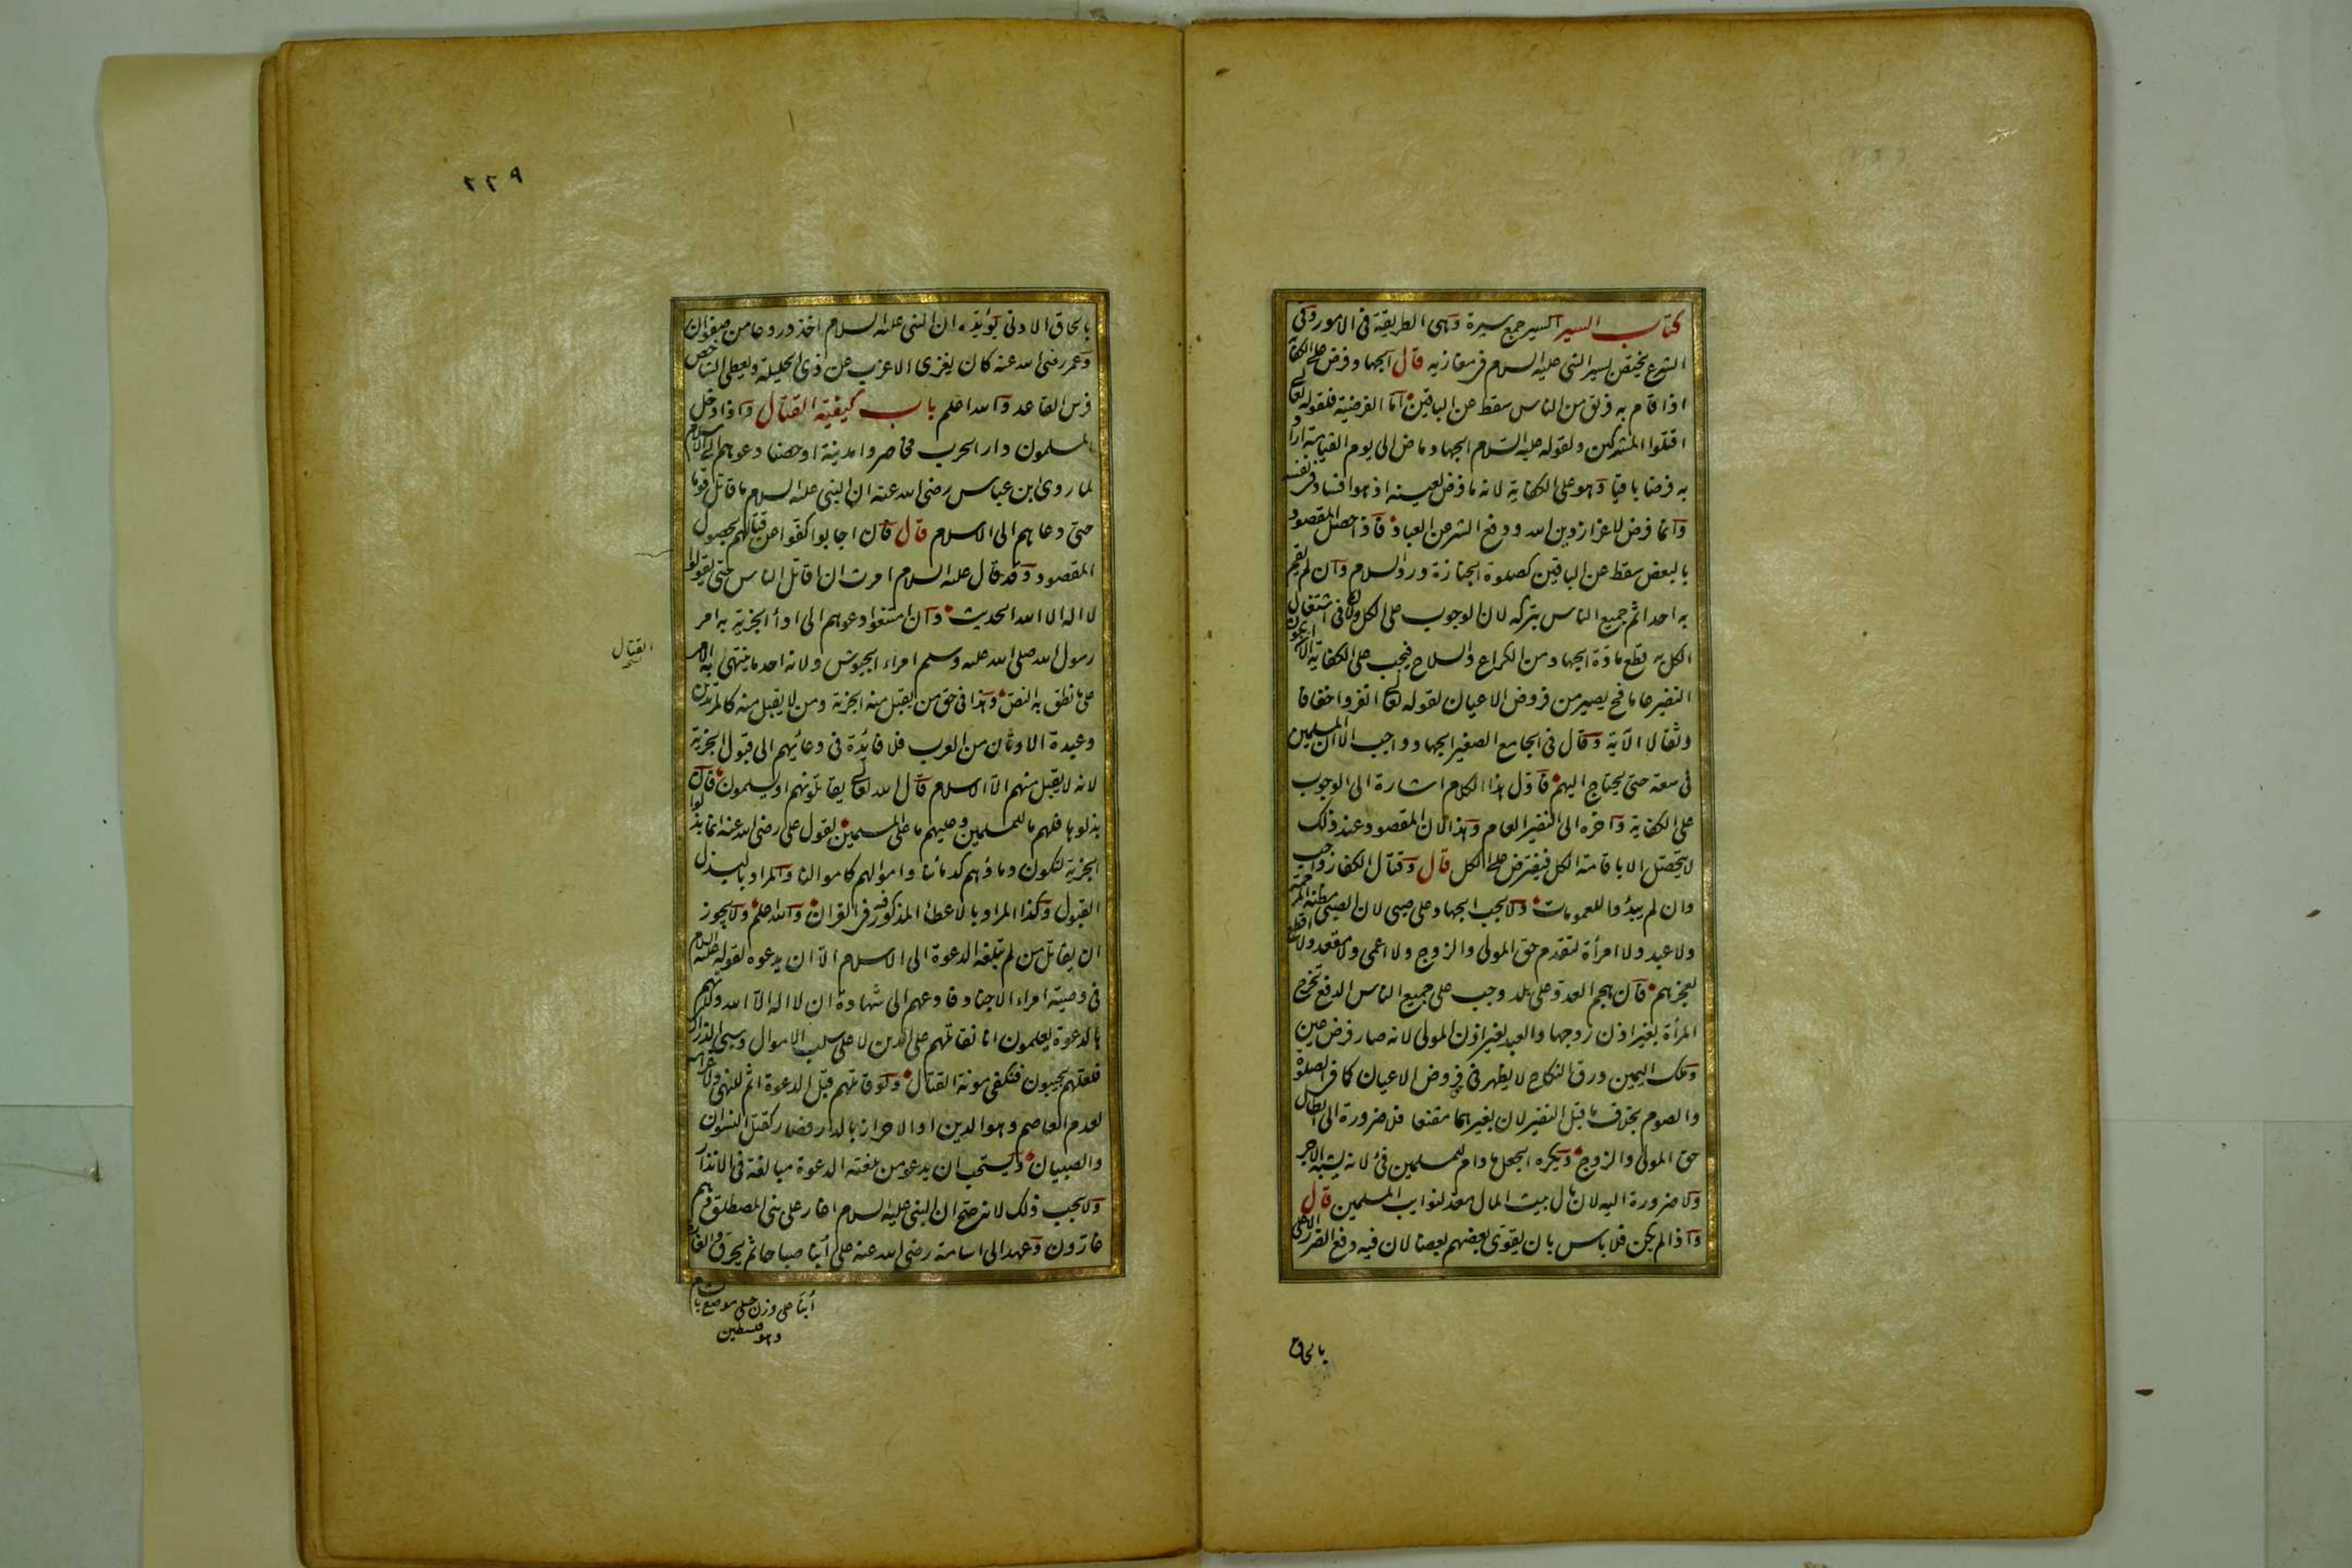 كتاب السير السير جمع سيرة وهى الطريقة فى الامور وفى
الشرع يختص بسير النبى عليه السلام فى مغازيه قال الجهاد فرض على الكفاية
اذا قام به فريق من الناس سقط عن الباقين اما الفرضية فلقوله تعالى
اقتلوا المشركين ولقوله عليه السلام الجهاد ماض الى يوم القيامة اراد
به فرضا باقيا وهو على الكفاية لانه ما فرض لعينه اذ هو افساد فى نفسه
وانما فرض لاعزاز دين الله ودفع الشر عن العباد فاذا حصل المقصود
بالبعض سقط عن الباقين كصلوة الجنازة ورد السلام وان لم يقم
به احد اثم جميع الناس بتركه لان الوجوب على الكل ولان فى اشتغال
الكل به قطع مادة الجهاد من الكراع والسلاح فيجب على الكفاية الا ان يكون
النفير عاما فح يصير من فروض الاعيان لقوله تعالى انفروا خفافا
وثقالا الآية وقال فى الجامع الصغير الجهاد واجب الا ان المسلمين
فى سعة حتى يحتاج اليهم فاول هذا الكلام اشارة الى الوجوب
على الكفاية وآخره الى النفير العام وهذا لان المقصود عند ذلك
لا يتحصل الا باقامة الكل فيفترض على الكل قال وقتال الكفار واجب
وان لم يبدؤا للعمومات ولا يجب الجهاد على صبى لان الصبى مظنة المرحمة
ولا عبد ولا امرأة لتقدم حق المولى والزوج ولا اعمى ولا مقعد ولا اقطع
لعجزهم فان هجم العدو على بلد وجب على جميع الناس الدفع تخرج
المرأة بغير اذن زوجها والعبد بغير اذن المولى لانه صار فرض عين
وملك اليمين ورق النكاح لا يظهر فى فروض الاعيان كما فى الصلوة
والصوم بخلاف ما قبل النفير لان بغيرهما مقنعا فلا ضرورة الى ابطال
حق المولى والزوج ويكره الجعل ما دام للمسلمين فئ لانه يشبه الاجر
ولا ضرورة اليه لان مال بيت المال معد لنوايب المسلمين قال
واذا لم يكن فلا باس بان يقوى بعضهم بعضا لان فيه دفع الضرر الاعلى
بالحاق
٢٢٩
بالحاق الادنى يؤيده ان النبى عليه السلام اخذ دروعا من صفوان
وعمر رضى الله عنه كان يغزى الاعزب عن ذى الحليلة ويعطى الشاخص
فرس القاعد والله اعلم باب كيفية القتال واذا دخل
المسلمون دار الحرب فحاصروا مدينة او حصنا دعوهم الى الاسلام
لما روى ابن عباس رضى الله عنه ان النبى عليه السلام ما قاتل قوما
حتى دعاهم الى الاسلام قال فان اجابوا كفوا عن قتالهم لحصول
المقصود وقد قال عليه السلام امرت ان اقاتل الناس حتى يقولوا
لا اله الا الله الحديث وان امتنعوا دعوهم الى اداء الجزية به امر
رسول الله صلى الله عليه وسلم امراء الجيوش ولانه احد ما ينتهى به الامر
القتال
على ما نطق به النص وهذا فى حق من يقبل منه الجزية ومن لا يقبل منه كالمرتدين
وعبدة الاوثان من العرب فلا فائدة فى دعائهم الى قبول الجزية
لانه لا يقبل منهم الا الاسلام قال الله تعالى يقاتلونهم او يسلمون فان
بذلوها فلهم ما للمسلمين وعليهم ما على المسلمين لقول على رضى الله عنه انما بذلوا
الجزية لتكون دماؤهم كدمائنا واموالهم كاموالنا والمراد بالبذل
القبول وكذا المراد بالاعطاء المذكور فيه فى القران والله اعلم ولا يجوز
ان يقاتل من لم تبلغه الدعوة الى الاسلام الا ان يدعوه لقوله عليه السلام
فى وصية امراء الاجناد فادعهم الى شهادة ان لا اله الا الله ولانهم
بالدعوة يعلمون انا نقاتلهم على الدين لا على سلب الاموال وسبى الذرارى
فلعلهم يجيبون فنكفى مونة القتال ولو قاتلهم قبل الدعوة اثم للنهى ولا غرامة
لعدم العاصم وهو الدين او الاحراز بالدار فصار كقتل النسوان
والصبيان ويستحب ان يدعو من بلغته الدعوة مبالغة فى الانذار
ولا يجب ذلك لانه صح ان النبى عليه السلام اغار على بنى المصطلق وهم
غارون وعهد الى اسامة رضى الله عنه ان يغير على أبنا صباحا ثم يحرق والغارة
أبنا على وزن حبلى موضع بالشام
وهو فلسطين